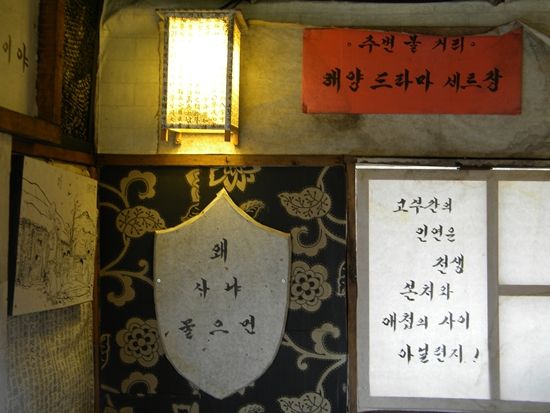 이야
· 주변 볼 거리 ·
해양 드라마 세트장
왜
사냐
물으면
고부간의
인연은
전생
본처와
애첩의 사이
아닐런지!